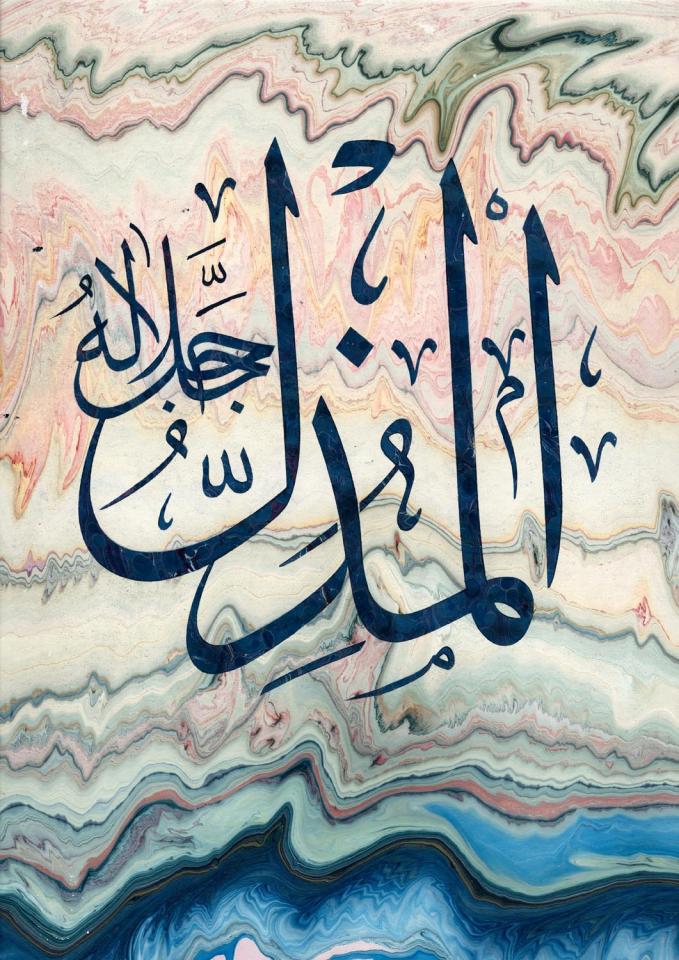 اَلْمُذِلُّ جَلَّ جَلَالُهُ